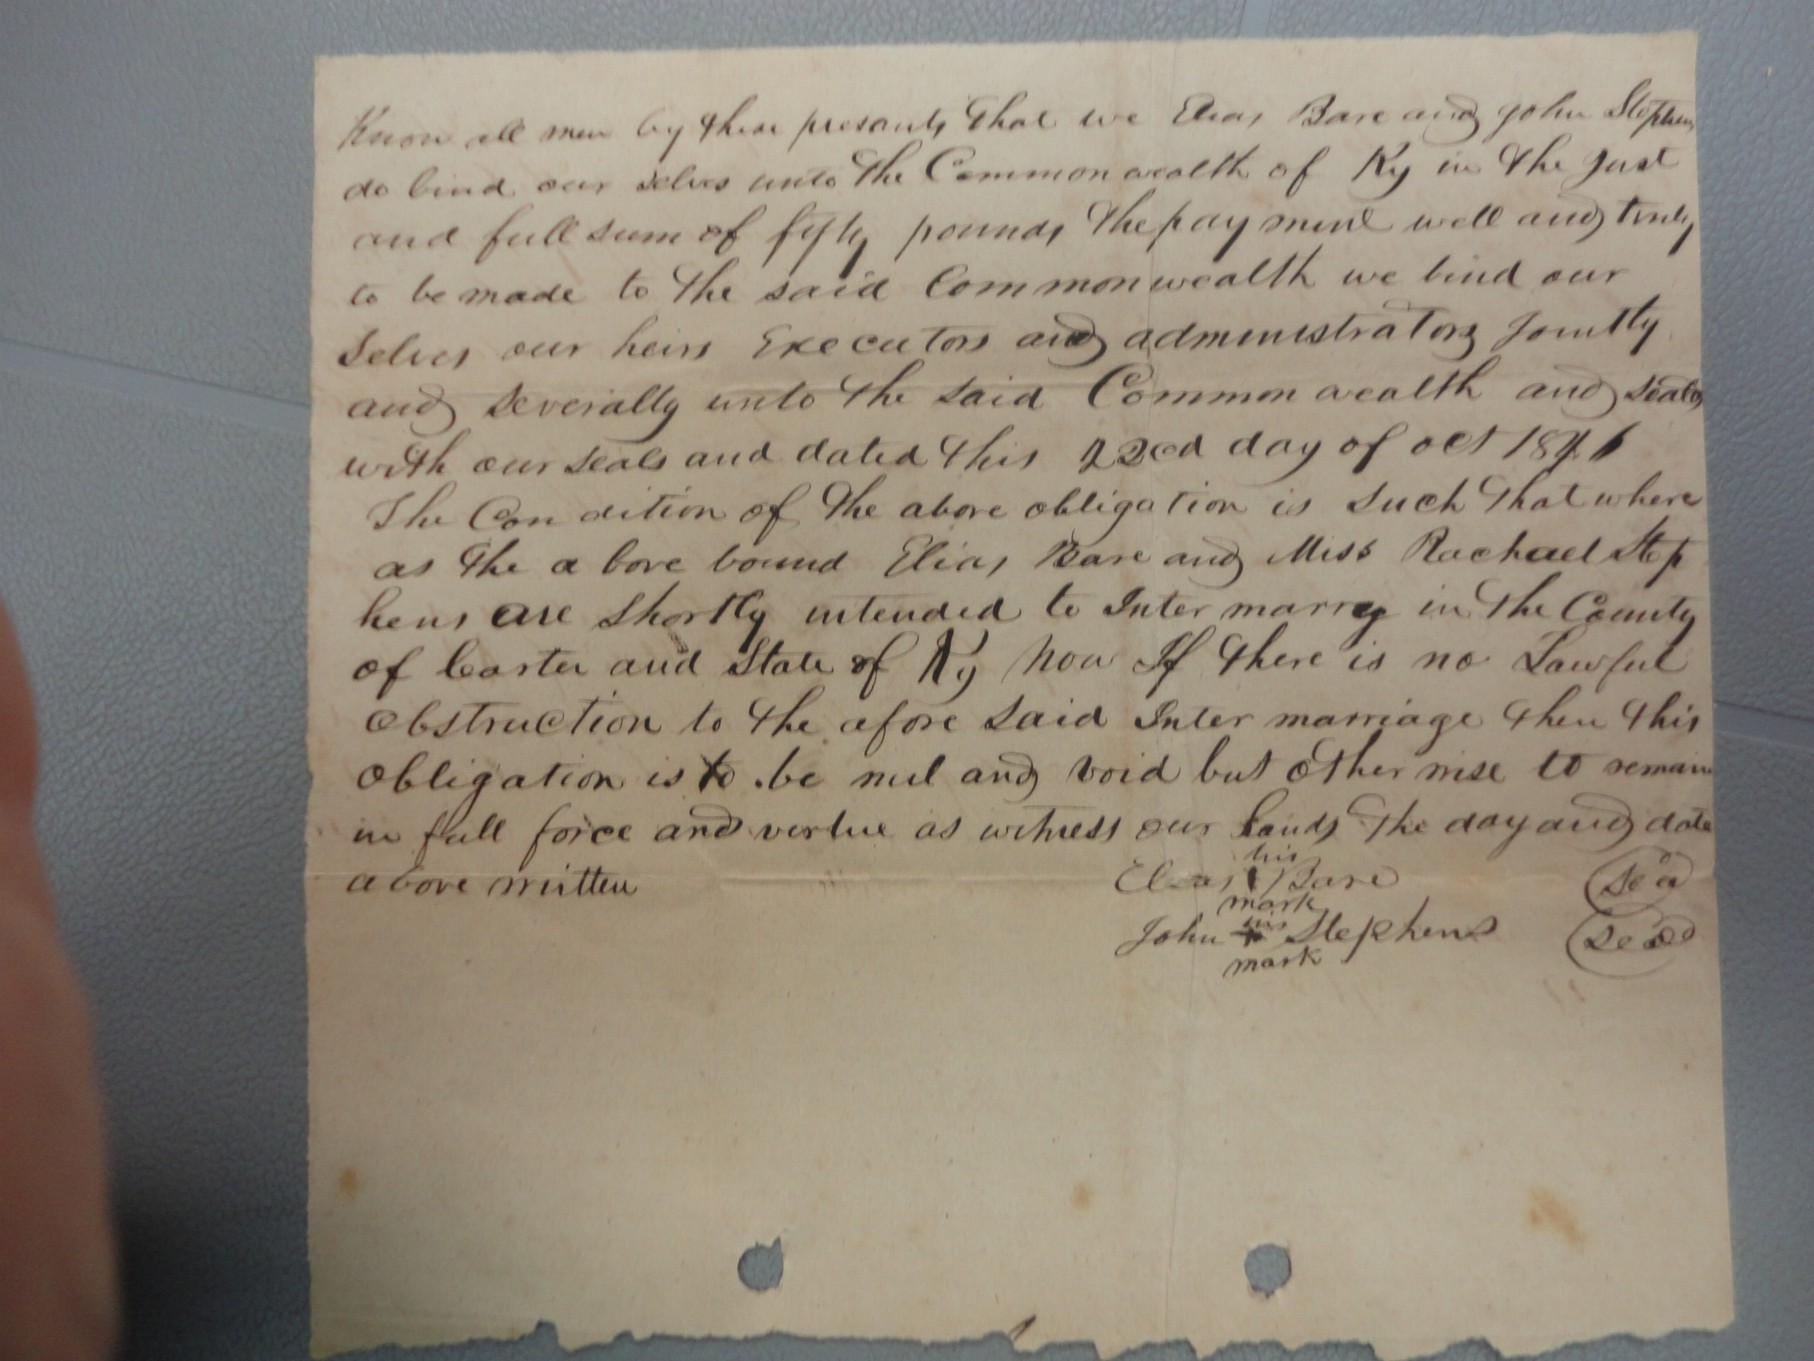 Know all men by these presants that we Elias Bare and John Stephens
do bind our selves unto the Commonwealth of Ky in the Just
and full sum of fifty pounds the payment well and truly
to be made to the said Commonwealth we bind our
selves our heirs Executors and administrators Jointly
and severally unto the said Commonwealth and seald
with our seals and dated this 22ed day of oct 1841
The Condition of the above obligation is such that where
as the above bound Elias Bare and Miss Rachael Step
hens are shortly intended to Inter marry in the County
of Carter and State of Ky Now If there is no Lawful
obstruction to the afore said Inter marriage then this
obligation is to be nul and void but otherwise to remain
in full force and vertue as witness our hands the day and date
above written
his
Elias Bare
mark
his
John + Stephens
mark